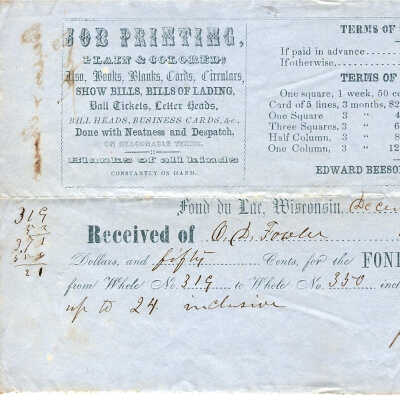 JOB PRINTING,
PLAIN & COLORED;
Also, Books, Blanks, Cards, Circulars,
SHOW BILLS, BILLS OF LADING,
Ball Tickets, Letter Heads,
BILL HEADS, BUSINESS CARDS, &c.,
Done with Neatness and Despatch,
ON REASONABLE TERMS.
Blanks of all kinds
CONSTANTLY ON HAND.
TERMS OF
If paid in advance
If otherwise,
TERMS OF
One square, 1 week, 50 ce
Card of 5 lines, 3 months, $2
One Square 3 " 4
Three Squares, 3 " 6
Half Column, 3 " 8
One Column, 3 " 12
EDWARD BEESO
Fond du Lac, Wisconsin, Dece
319
Received of O. D. Fowler
Dollars, and fifty Cents, for the FOND
from Whole No. 319 to Whole No. 350 incl
up to 24 inclusive